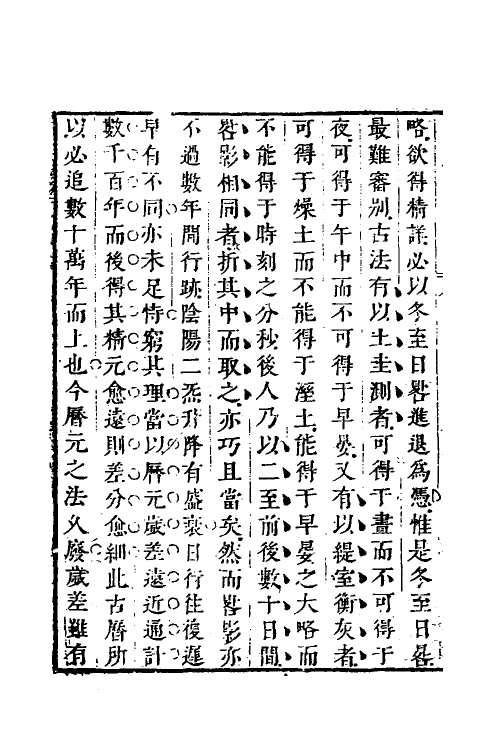 略欲得精詳必以冬至日晷進退為憑惟是冬至日晷
最難審别古法有以土圭測者可得于晝而不可得于
夜可得于午中而不可得于早晏又有以緹室衡灰者
可得于燥土而不能得于溼土能得于早晏之大略而
不能得于時刻之分秒後人乃以二至前後數十日間
晷影相同者折其中而取之亦巧且當矣然而晷影亦
不過數年間行跡陰陽二炁升降有盛衰日行往復遲
早有不同亦未足恃窮其理當以曆元歲差遠近通計
數千百年而後得其精元愈遠則差分愈細此古曆所
以必追數十萬年而上也今曆元之法久廢歲差雖有